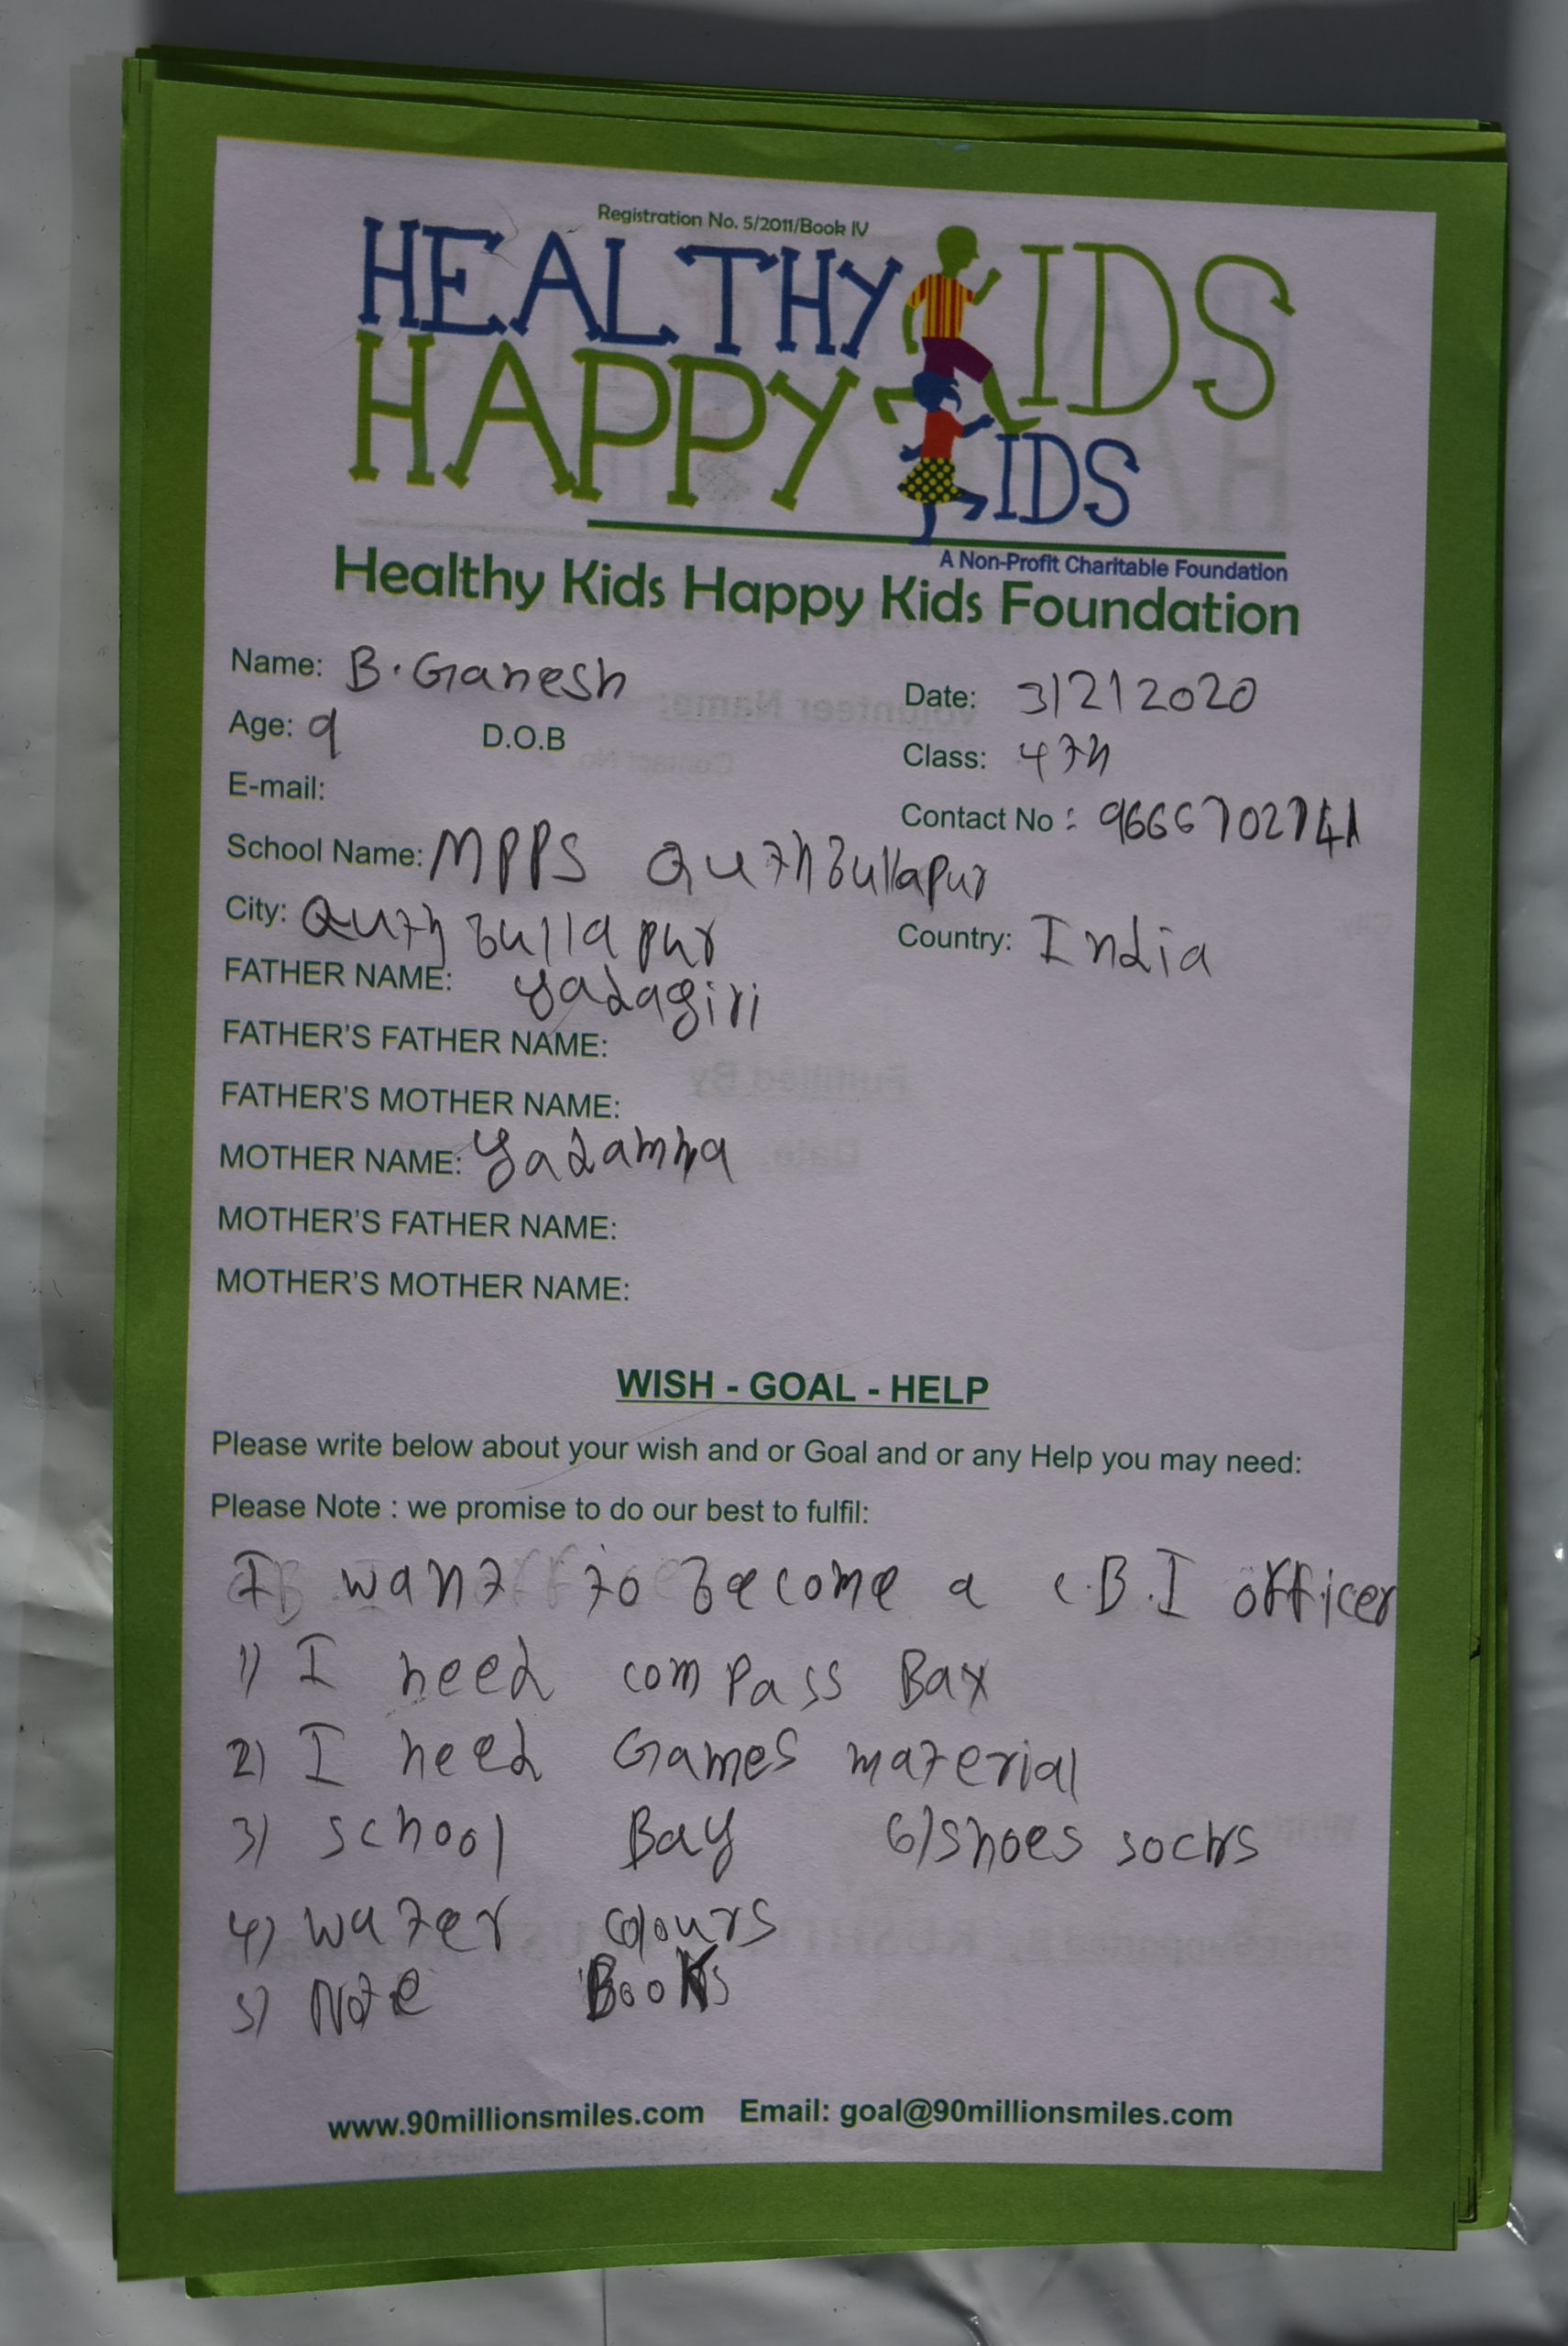 Registration No. 5/2011/Book IV
HEALTHY KIDS
HAPPY KIDS
A Non-Profit Charitable Foundation
Healthy Kids Happy Kids Foundation
Name: B. Ganesh
Date: 3/2/2020
Age: 9 D.O.B
Class: 4th
E-mail:
Contact No :
School Name: MPPS Quthbullapur
City: Quthbullapur
Country: India
FATHER NAME: Yadagiri
FATHER'S FATHER NAME:
FATHER'S MOTHER NAME:
MOTHER NAME: Yadamma
MOTHER'S FATHER NAME:
MOTHER'S MOTHER NAME:
WISH - GOAL - HELP
Please write below about your wish and or Goal and or any Help you may need:
Please Note : we promise to do our best to fulfil:
I want to become a C.B.I officer
1) I need compass Bax
2) I need Games material
3) school Bag 6) shoes socks
4) water colours
5) Note Books
www.90millionsmiles.com Email: goal@90millionsmiles.com